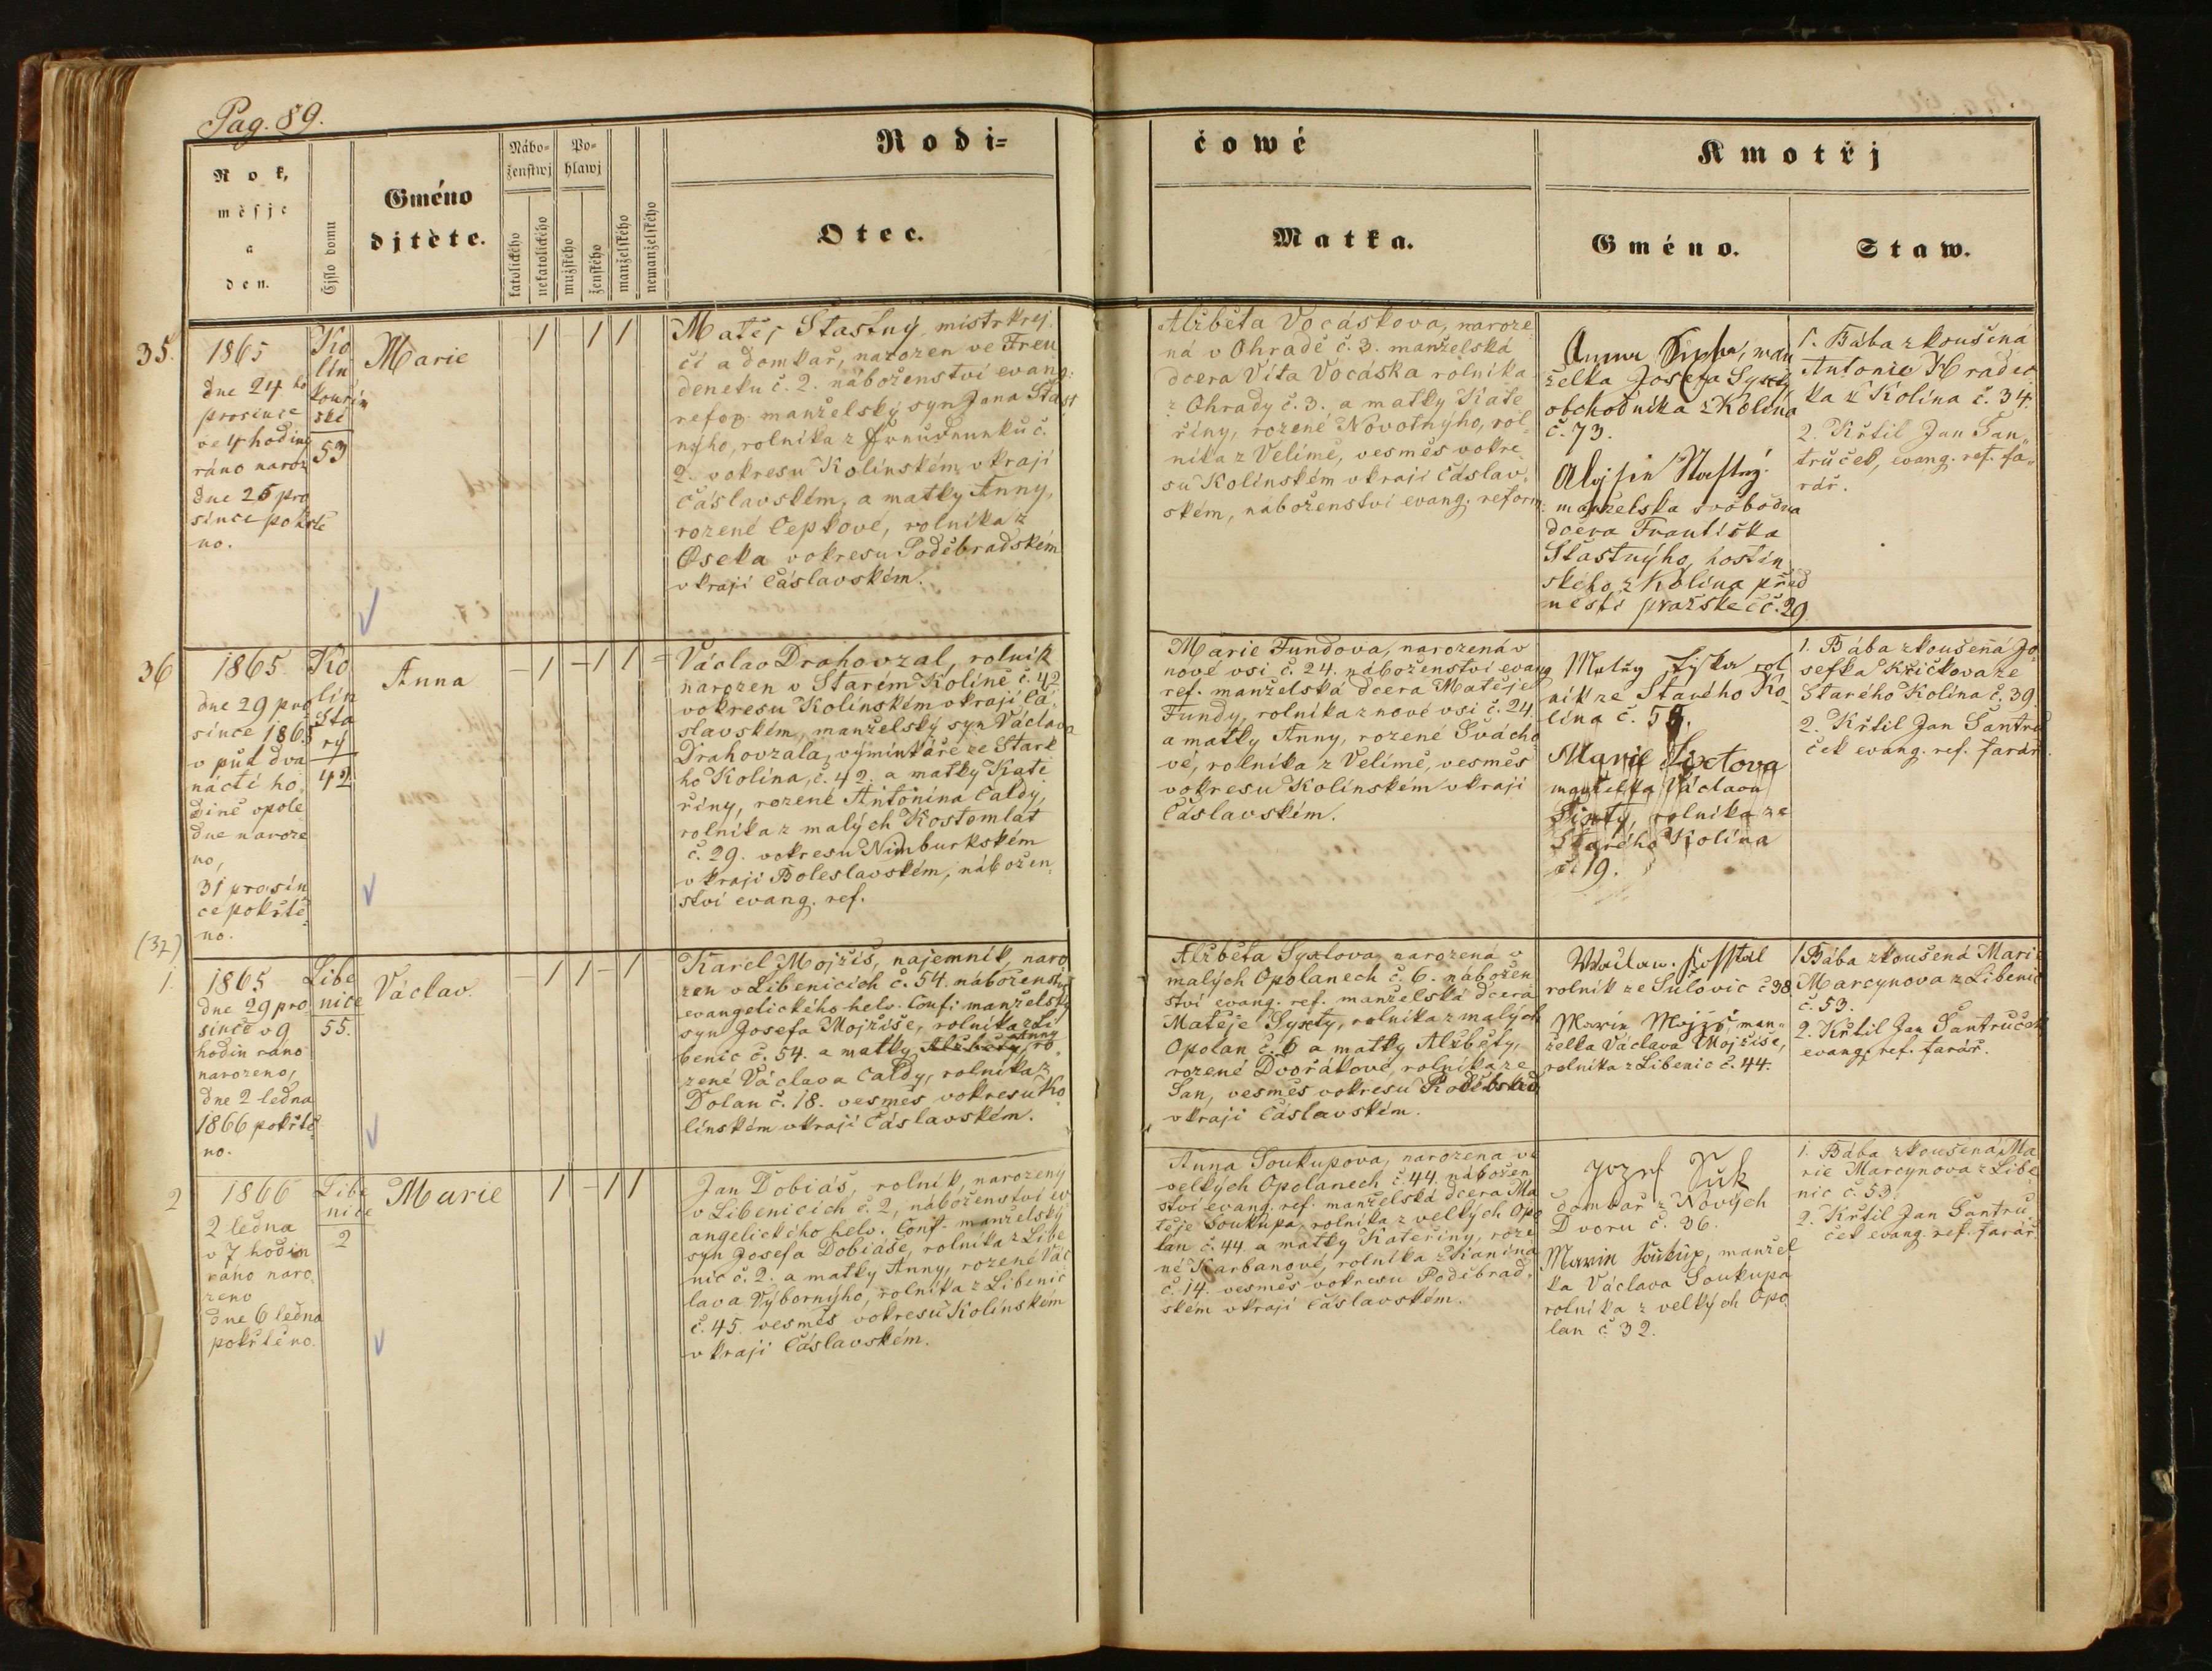 Pag. 89.
Rok,
měsjc
a
den.
Čjslo domu
Gméno
djtěte.
Nábo=
ženstwj
katolického
nekatolického
Po=
hlawj
mužského
ženského
manželského
nemanželského
Rodi=
Otec.
čowé
Matka.
Kmotřj
Gméno.
Staw.
35.
1865
dne 24 ho
prosince
ve 4 hodiny
ráno naroz
dne 26 pro
since pokřtě
no.
Ko
lín
kouřím
ské
53
Marie
1 - 1 1
Matěj Stastný mistr krej
čí a domkař, narozen ve
č. 2. náboženství evang:
refor. manželský syn Jana Stast
nýho, rolníka z č.
2. vokresu Kolínském, v kraji
Čáslavském, a matky Anny,
rozené Cepkové, rolníka z
Oseka vokresu Poděbradském
v kraji Čáslavském.
Alžběta Vocáskova, naroze
ná v Ohradě č. 3. manželská
dcera Víta Vocáska rolníka
z Ohrady č. 3. a matky Kate
řiny, rozené Novotnýho, rol
níka z Velimě, vesměs vokre
su Kolínském v kraji Čáslav
ském, náboženství evang. reform.
Anna man
želka Josefa Syxty
obchodníka z Kolína
č. 73.
Stastný.
manželska svobodna
dcera Františka
Stastnýho, hostin
ského z Kolína před
městí pražské č. 29
1. Bába zkoušená
Antonie Hradec
ka z Kolína č. 34.
2. Křtil Jan Šan„
trůček, evang. ref. fa„
rář.
36
1865
dne 29 pro
since 1865
v půl dva
nácti ho
dině opole
dne naroze
no,
31 prosin
ce pokřtě
no.
Ko
lín
Sta
rý
42
Anna
- 1 - 1 1 -
Václav Drahovzal, rolník
narozen v Starém Kolíně č. 42
vokresu Kolínském v kraji Čá
slavském, manželský syn Václava
Drahovzala, výminkáře ze Staré
ho Kolína, č. 42. a matky Kate
řiny, rozené Antonína Caldy,
rolníka z malých Kostomlat
č. 29. vokresu Nimburkském
v kraji Boleslavském, nábožen
ství evang. ref.
Marie Fundova, narozená v
nové vsi č. 24. náboženství evang
ref. manželská dcera Matěje
Fundy, rolníka z nové vsi č. 24
a matky Anny, rozené Švácho
vé, rolníka z Velimě, vesměs
vokresu Kolínském v kraji
Čáslavském.
rol
ník ze Starého Ko
lína č. 55.
Marie Syxtova
manželka Václava
Sixty, rolníka ze
Starého Kolína
č. 19.
1. Bába zkoušená Jo
sefka Křičkova ze
Starého Kolína č. 39.
2. Křtil Jan Šantrů
ček evang. ref. farář.
(37)
1.
1865
dne 29 pro
since v 9
hodin ráno
narozeno,
dne 2 ledna
1866 pokřtě
no.
Libe
nice
55.
Václav.
- 1 1 - 1
Karel Mojžíš, najemník, naro
zen v Libenicích č. 54. náboženství
evangelického helv. Conf: manželský
syn Josefa Mojžíše, rolníka z Li
benic č. 54. a matky Alžběty Anny, ro
zené Václava Caldy, rolníka z
Dolan č. 18. vesměs vokresu Ko
línském v kraji Čáslavském.
Alžběta Syxtova, narozená v
malých Opolanech č. 6. nábožen
ství evang. ref. manželská dcera
Matěje Syxty, rolníka z malých
Opolan č. 6 a matky Alžběty,
rozené Dvořákové, rolníka ze
San, vesměs vokresu Poděbrad
v kraji Čáslavském.
rolník ze Sulovic č 38
Marie Mojžíš, man„
želka Václava Mojžíše,
rolníka z Libenic č. 44.
1 Bába zkoušená Marie
Marcynova z Libenic
č. 53.
2. Křtil Jan Šantrůček
evang. ref. farář.
2
1866
2 ledna
v 7 hodin
ráno naro
zeno
dne 6 ledna
pokřtěno.
Libe
nice
2
Marie
1 - 1 1
Jan Dobiáš, rolník, narozený
v Libenicích č. 2, náboženství ev
angelického helv. Conf. manželský
syn Josefa Dobiáše, rolníka z Libe
nic č. 2. a matky Anny, rozené Vác
lava Výbornýho, rolníka z Libenic
č. 45. vesměs vokresu Kolínském
v kraji Čáslavském.
Anna Soukupova, narozena ve
velkých Opolanech č. 44. nábožen
ství evang. ref. manželská dcera Ma
těje Soukupa, rolníka z velkých Opo
lan č. 44. a matky Kateřiny, roze
né Karbanové, rolníka z Kanina
č. 14. vesměs vokresu Poděbrad
ském v kraji Čáslavském.
Jozef Suk
domkář z Nových
Dvoru č. 36.
Marie Soukup, manžel
ka Václava Soukupa
rolníka z velkých Opo
lan č 32.
1. Bába zkoušená, Ma
rie Marcynova z Libe
nic č. 53.
2. Křtil Jan Šantrů
ček evang. ref. farář.